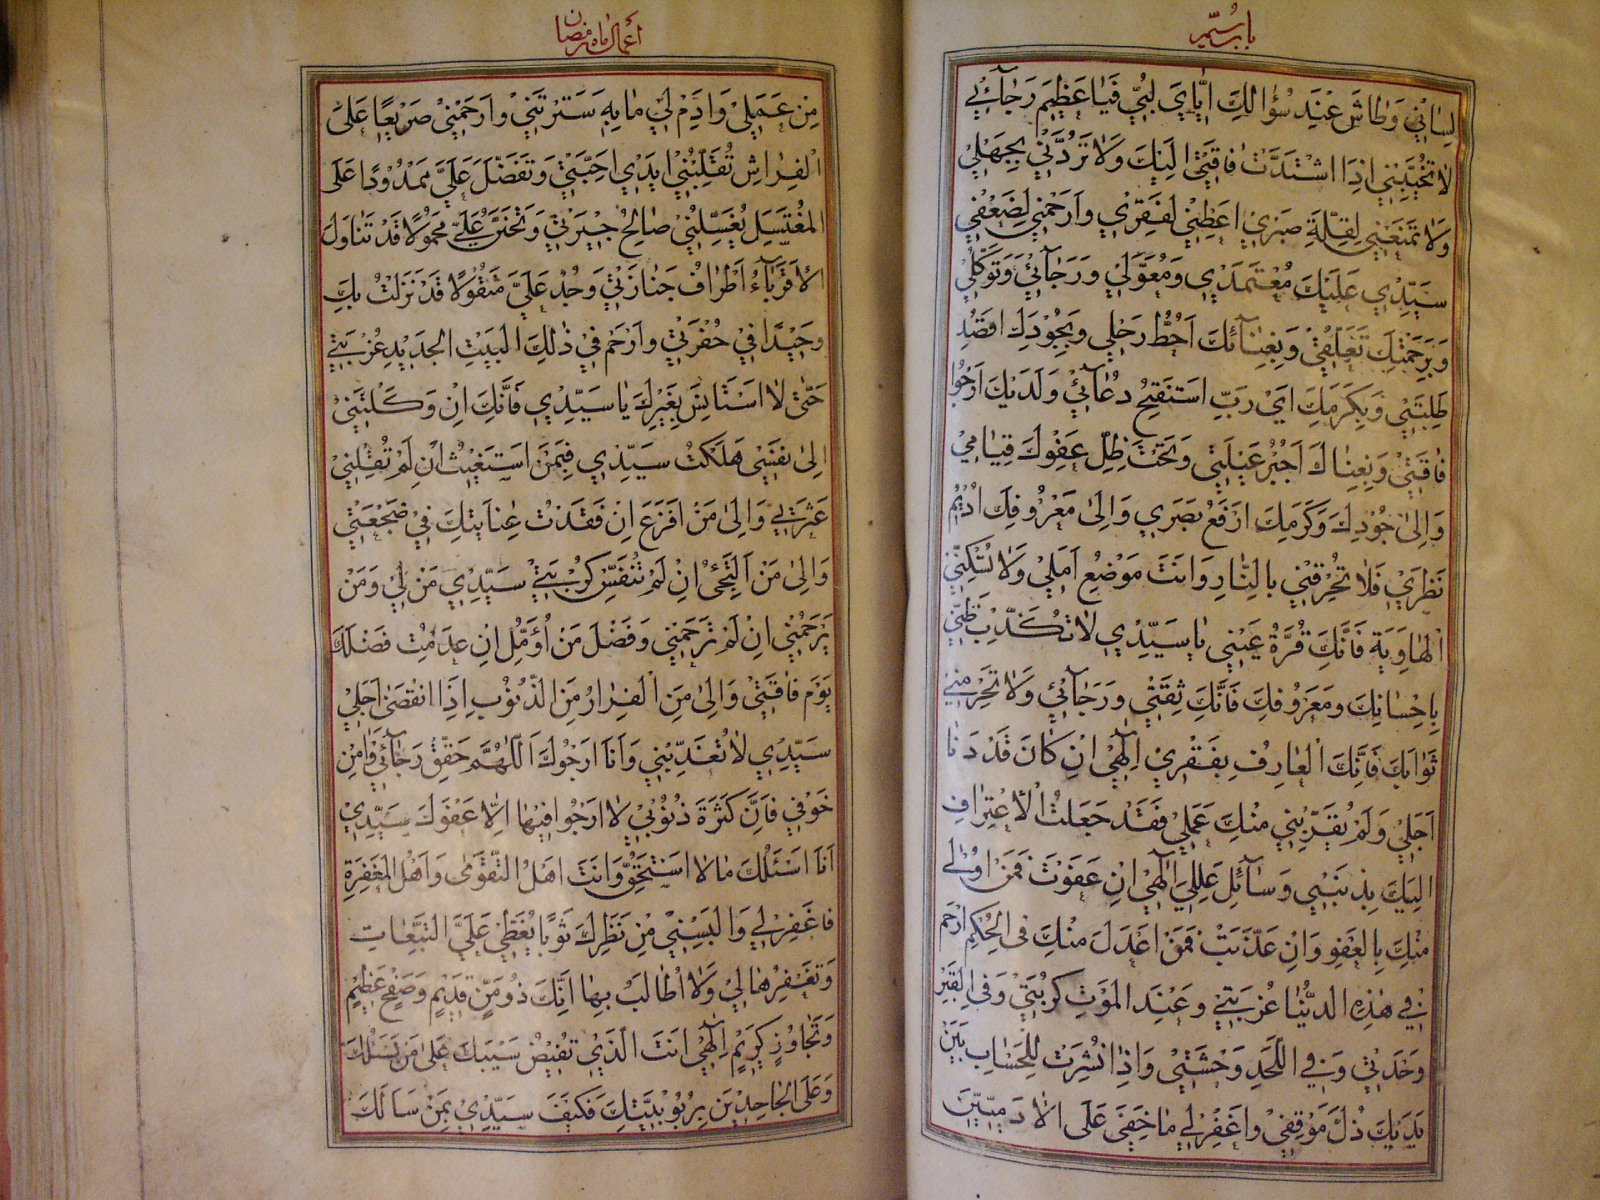 لِسَانِي وَطَاشَ عِنْدَ سُؤَالِكَ إِيَّايَ لُبِّي فَيَا عَظِيمَ رَجَائِي
لَا تُخَيِّبْنِي إِذَا اشْتَدَّتْ فَاقَتِي إِلَيْكَ وَلَا تَرُدَّنِي بِجَهْلِي
وَلَا تَمْنَعْنِي لِقِلَّةِ صَبْرِي أَعْطِنِي لِفَقْرِي وَارْحَمْنِي لِضَعْفِي
سَيِّدِي عَلَيْكَ مُعْتَمَدِي وَمُعَوَّلِي وَرَجَائِي وَتَوَكُّلِي
وَبِرَحْمَتِكَ تَعَلُّقِي وَبِفِنَائِكَ أَحُطُّ رَحْلِي وَبِجُودِكَ أَقْصِدُ
طَلِبَتِي وَبِكَرَمِكَ أَيْ رَبِّ أَسْتَفْتِحُ دُعَائِي وَلَدَيْكَ أَرْجُوا
فَاقَتِي وَبِغِنَاكَ أَجْبُرُ عَيْلَتِي وَتَحْتَ ظِلِّ عَفْوِكَ قِيَامِي
وَإِلَى جُودِكَ وَكَرَمِكَ أَرْفَعُ بَصَرِي وَإِلَى مَعْرُوفِكَ أُدِيمُ
نَظَرِي فَلَا تُحْرِقْنِي بِالنَّارِ وَأَنْتَ مَوْضِعُ أَمَلِي وَلَا تُسْكِنِّي
الْهَاوِيَةَ فَإِنَّكَ قُرَّةُ عَيْنِي يَا سَيِّدِي لَا تُكَذِّبْ ظَنِّي
بِإِحْسَانِكَ وَمَعْرُوفِكَ فَإِنَّكَ ثِقَتِي وَرَجَائِي وَلَا تَحْرِمْنِي
ثَوَابَكَ فَإِنَّكَ الْعَارِفُ بِفَقْرِي إِلَهِي إِنْ كَانَ قَدْ دَنَا
أَجَلِي وَلَمْ يُقَرِّبْنِي مِنْكَ عَمَلِي فَقَدْ جَعَلْتُ الْإِعْتِرَافَ
إِلَيْكَ بِذَنْبِي وَسَائِلَ عِلَلِي إِلَهِي إِنْ عَفَوْتَ فَمَنْ أَوْلَى
مِنْكَ بِالْعَفْوِ وَإِنْ عَذَّبْتَ فَمَنْ أَعْدَلُ مِنْكَ فِي الْحُكْمِ ارْحَمْ
فِي هَذِهِ الدُّنْيَا غُرْبَتِي وَعِنْدَ الْمَوْتِ كُرْبَتِي وَفِي الْقَبْرِ
وَحْدَتِي وَفِي اللَّحْدِ وَحْشَتِي وَإِذَا نُشِرْتُ لِلْحِسَابِ بَيْنَ
يَدَيْكَ ذُلَّ مَوْقِفِي وَاغْفِرْ لِي مَا خَفِيَ عَلَى الْآدَمِيِّينَ
أعمال ماه رمضان
مِنْ عَمَلِي وَأَدِمْ لِي مَا بِهِ سَتَرْتَنِي وَارْحَمْنِي صَرِيعًا عَلَى
الْفِرَاشِ تُقَلِّبُنِي أَيْدِي أَحِبَّتِي وَتَفَضَّلْ عَلَيَّ مَمْدُودًا عَلَى
الْمُغْتَسَلِ يُغَسِّلُنِي صَالِحُ جِيرَتِي وَتَحَنَّنْ عَلَيَّ مَحْمُولًا قَدْ تَنَاوَلَ
الْأَقْرِبَاءُ أَطْرَافَ جَنَازَتِي وَجُدْ عَلَيَّ مَنْقُولًا قَدْ نَزَلْتُ بِكَ
وَحِيدًا فِي حُفْرَتِي وَارْحَمْ فِي ذَلِكَ الْبَيْتِ الْجَدِيدِ غُرْبَتِي
حَتَّى لَا أَسْتَأْنِسَ بِغَيْرِكَ يَا سَيِّدِي فَإِنَّكَ إِنْ وَكَلْتَنِي
إِلَى نَفْسِي هَلَكْتُ سَيِّدِي فَبِمَنْ أَسْتَغِيثُ إِنْ لَمْ تُقِلْنِي
عَثْرَتِي وَإِلَى مَنْ أَفْزَعُ إِنْ فَقَدْتُ عِنَايَتَكَ فِي ضَجْعَتِي
وَإِلَى مَنْ أَلْتَجِئُ إِنْ لَمْ تُنَفِّسْ كُرْبَتِي سَيِّدِي مَنْ لِي وَمَنْ
يَرْحَمُنِي إِنْ لَمْ تَرْحَمْنِي وَفَضْلَ مَنْ أُؤَمِّلُ إِنْ عَدِمْتُ فَضْلَكَ
يَوْمَ فَاقَتِي وَإِلَى مَنِ الْفِرَارُ مِنَ الذُّنُوبِ إِذَا انْقَضَى أَجَلِي
سَيِّدِي لَا تُعَذِّبْنِي وَأَنَا أَرْجُوكَ اللَّهُمَّ حَقِّقْ رَجَائِي وَآمِنْ
خَوْفِي فَإِنَّ كَثْرَةَ ذُنُوبِي لَا أَرْجُوا فِيهَا إِلَّا عَفْوَكَ سَيِّدِي
أَنَا أَسْئَلُكَ مَا لَا أَسْتَحِقُّ وَأَنْتَ أَهْلُ التَّقْوَى وَأَهْلُ الْمَغْفِرَةِ
فَاغْفِرْ لِي وَأَلْبِسْنِي مِنْ نَظَرِكَ ثَوْبًا يُغَطِّي عَلَيَّ التَّبِعَاتِ
وَتَغْفِرُهَا لِي وَلَا أُطَالَبُ بِهَا إِنَّكَ ذُو مَنٍّ قَدِيمٍ وَصَفْحٍ عَظِيمٍ
وَتَجَاوُزٍ كَرِيمٍ إِلَهِي أَنْتَ الَّذِي تُفِيضُ سَيْبَكَ عَلَى مَنْ لَا يَسْئَلُكَ
وَعَلَى الْجَاحِدِينَ بِرُبُوبِيَّتِكَ فَكَيْفَ سَيِّدِي بِمَنْ سَأَلَكَ